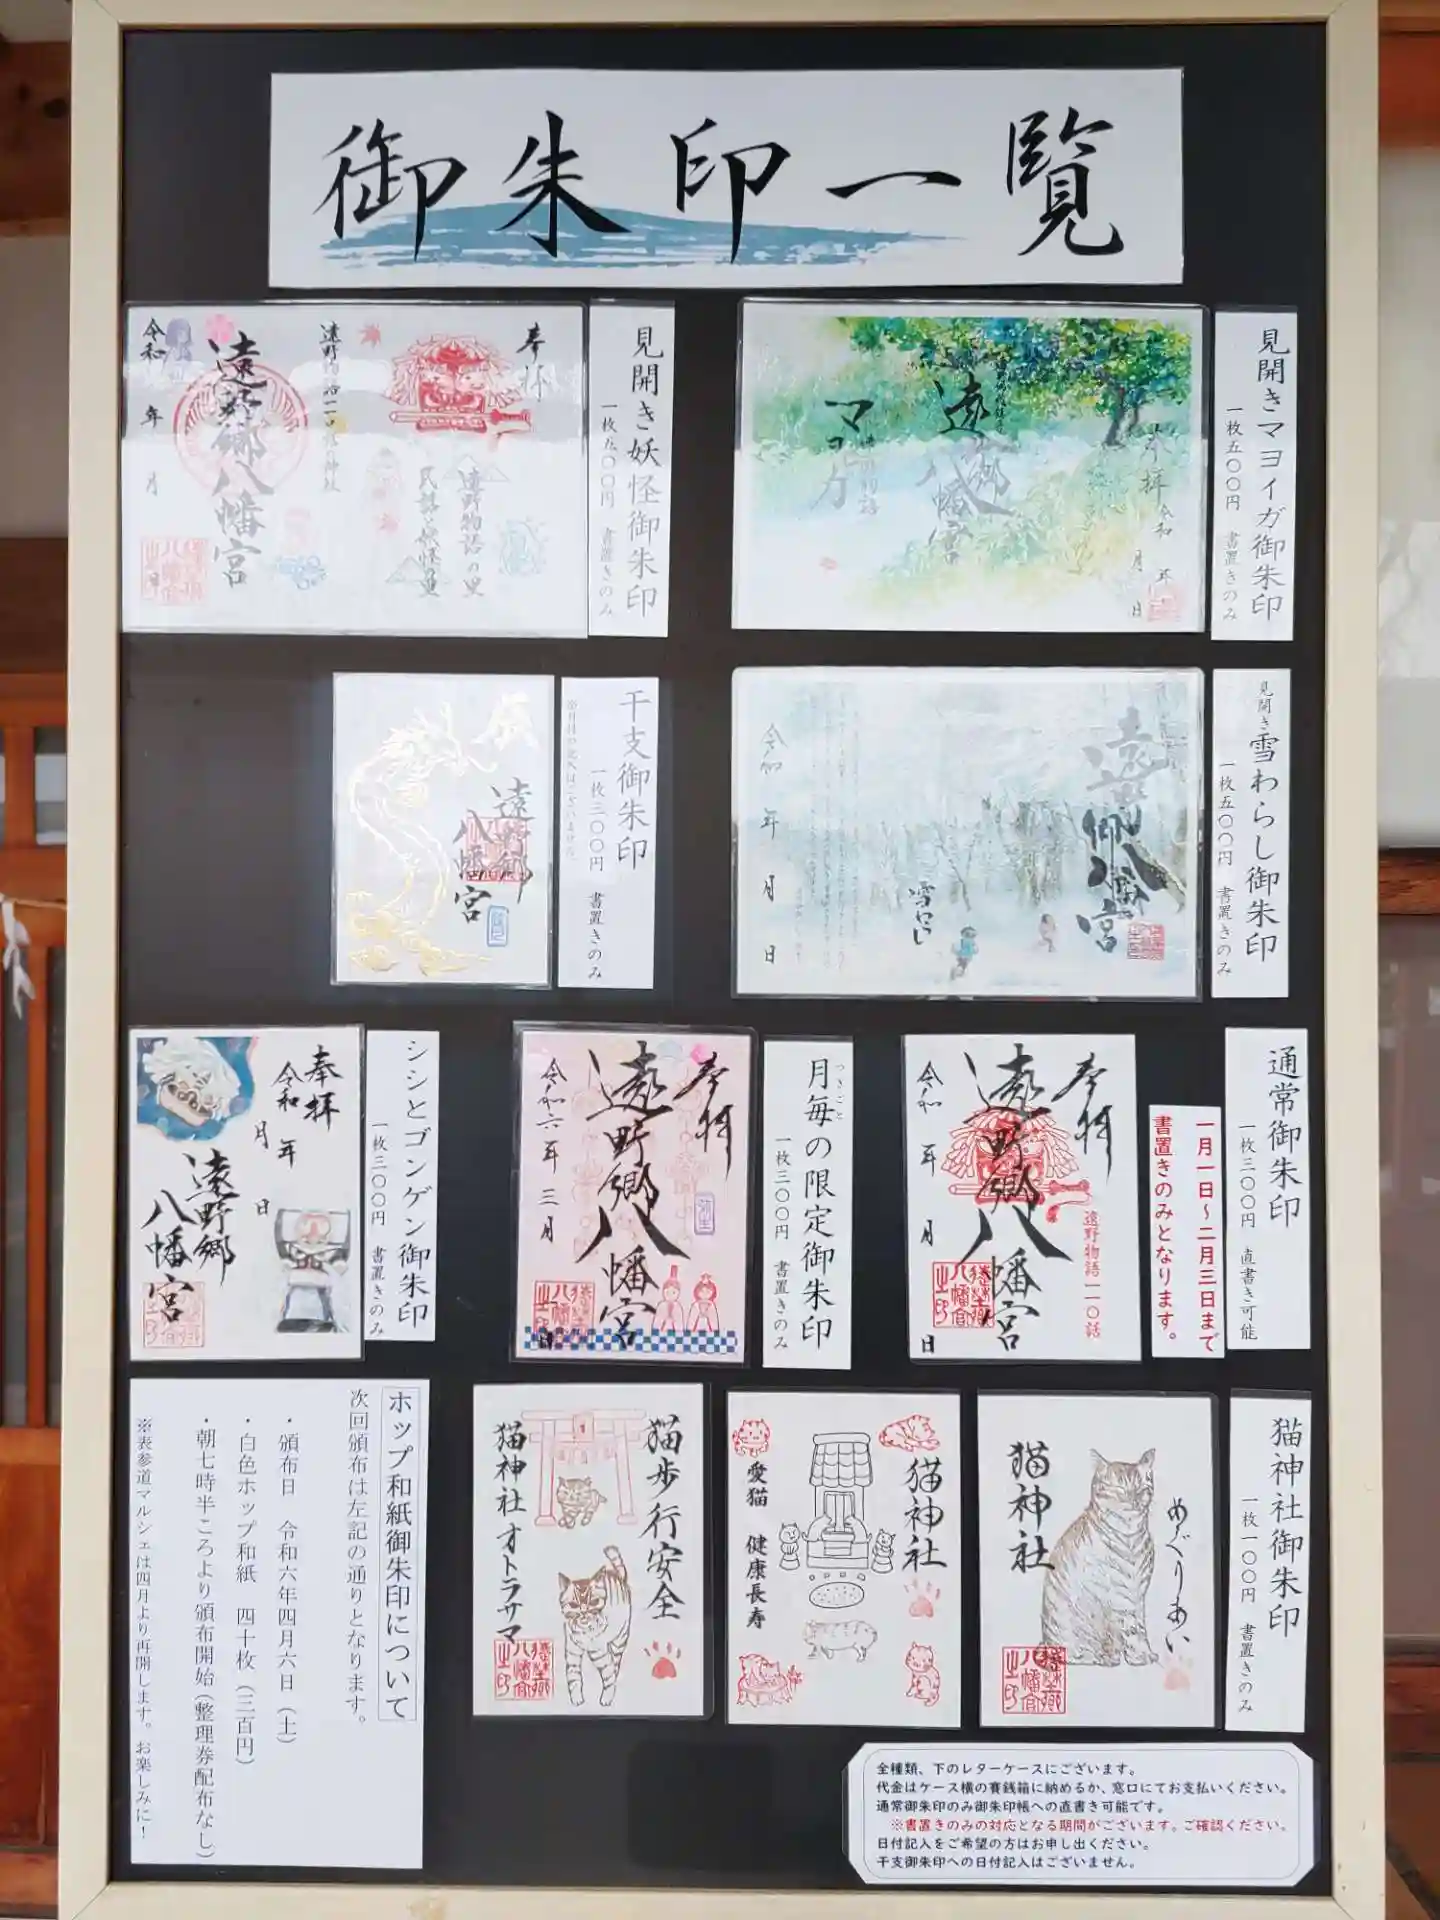 御朱印一覧
見開きマヨイガ御朱印
一枚五〇〇円 書置きのみ
奉拝 令和 年 月 日
遠野郷八幡宮
マヨイガ
見開き妖怪御朱印
一枚五〇〇円 書置きのみ
奉拝
遠野物語の里
民話と妖怪の里
遠野郷八幡宮
令和 年 月 日
見開き雪わらし御朱印
一枚五〇〇円 書置きのみ
遠野郷八幡宮
雪わらし
令和 年 月 日
干支御朱印
一枚三〇〇円 書置きのみ
辰
遠野郷
八幡宮
通常御朱印
一枚三〇〇円 直書き可能
一月一日〜二月三日まで
書置きのみとなります。
奉拝
遠野物語一一〇話
遠野郷八幡宮
令和 年 月 日
月毎の限定御朱印
つきごと
一枚三〇〇円 書置きのみ
奉拝
弥生
遠野郷八幡宮
令和六年三月 日
シシとゴンゲン御朱印
一枚三〇〇円 書置きのみ
奉拝
令和 年 月 日
遠野郷
八幡宮
猫神社御朱印
一枚一〇〇円 書置きのみ
めぐりあい
猫神社
猫神社
愛猫 健康長寿
猫歩行安全
猫神社オトラサマ
ホップ和紙御朱印について
次回頒布は左記の通りとなります。
・頒布日 令和六年四月六日(土)
・白色ホップ和紙 四十枚(三百円)
・朝七時半ころより頒布開始(整理券配布なし)
※表参道マルシェは四月より再開します。お楽しみに!
全種類、下のレターケースにございます。
代金はケース横の賽銭箱に納めるか、窓口にてお支払いください。
通常御朱印のみ御朱印帳への直書き可能です。
※書置きのみの対応となる期間がございます。ご確認ください。
日付記入をご希望の方はお申し出ください。
干支御朱印への日付記入はございません。